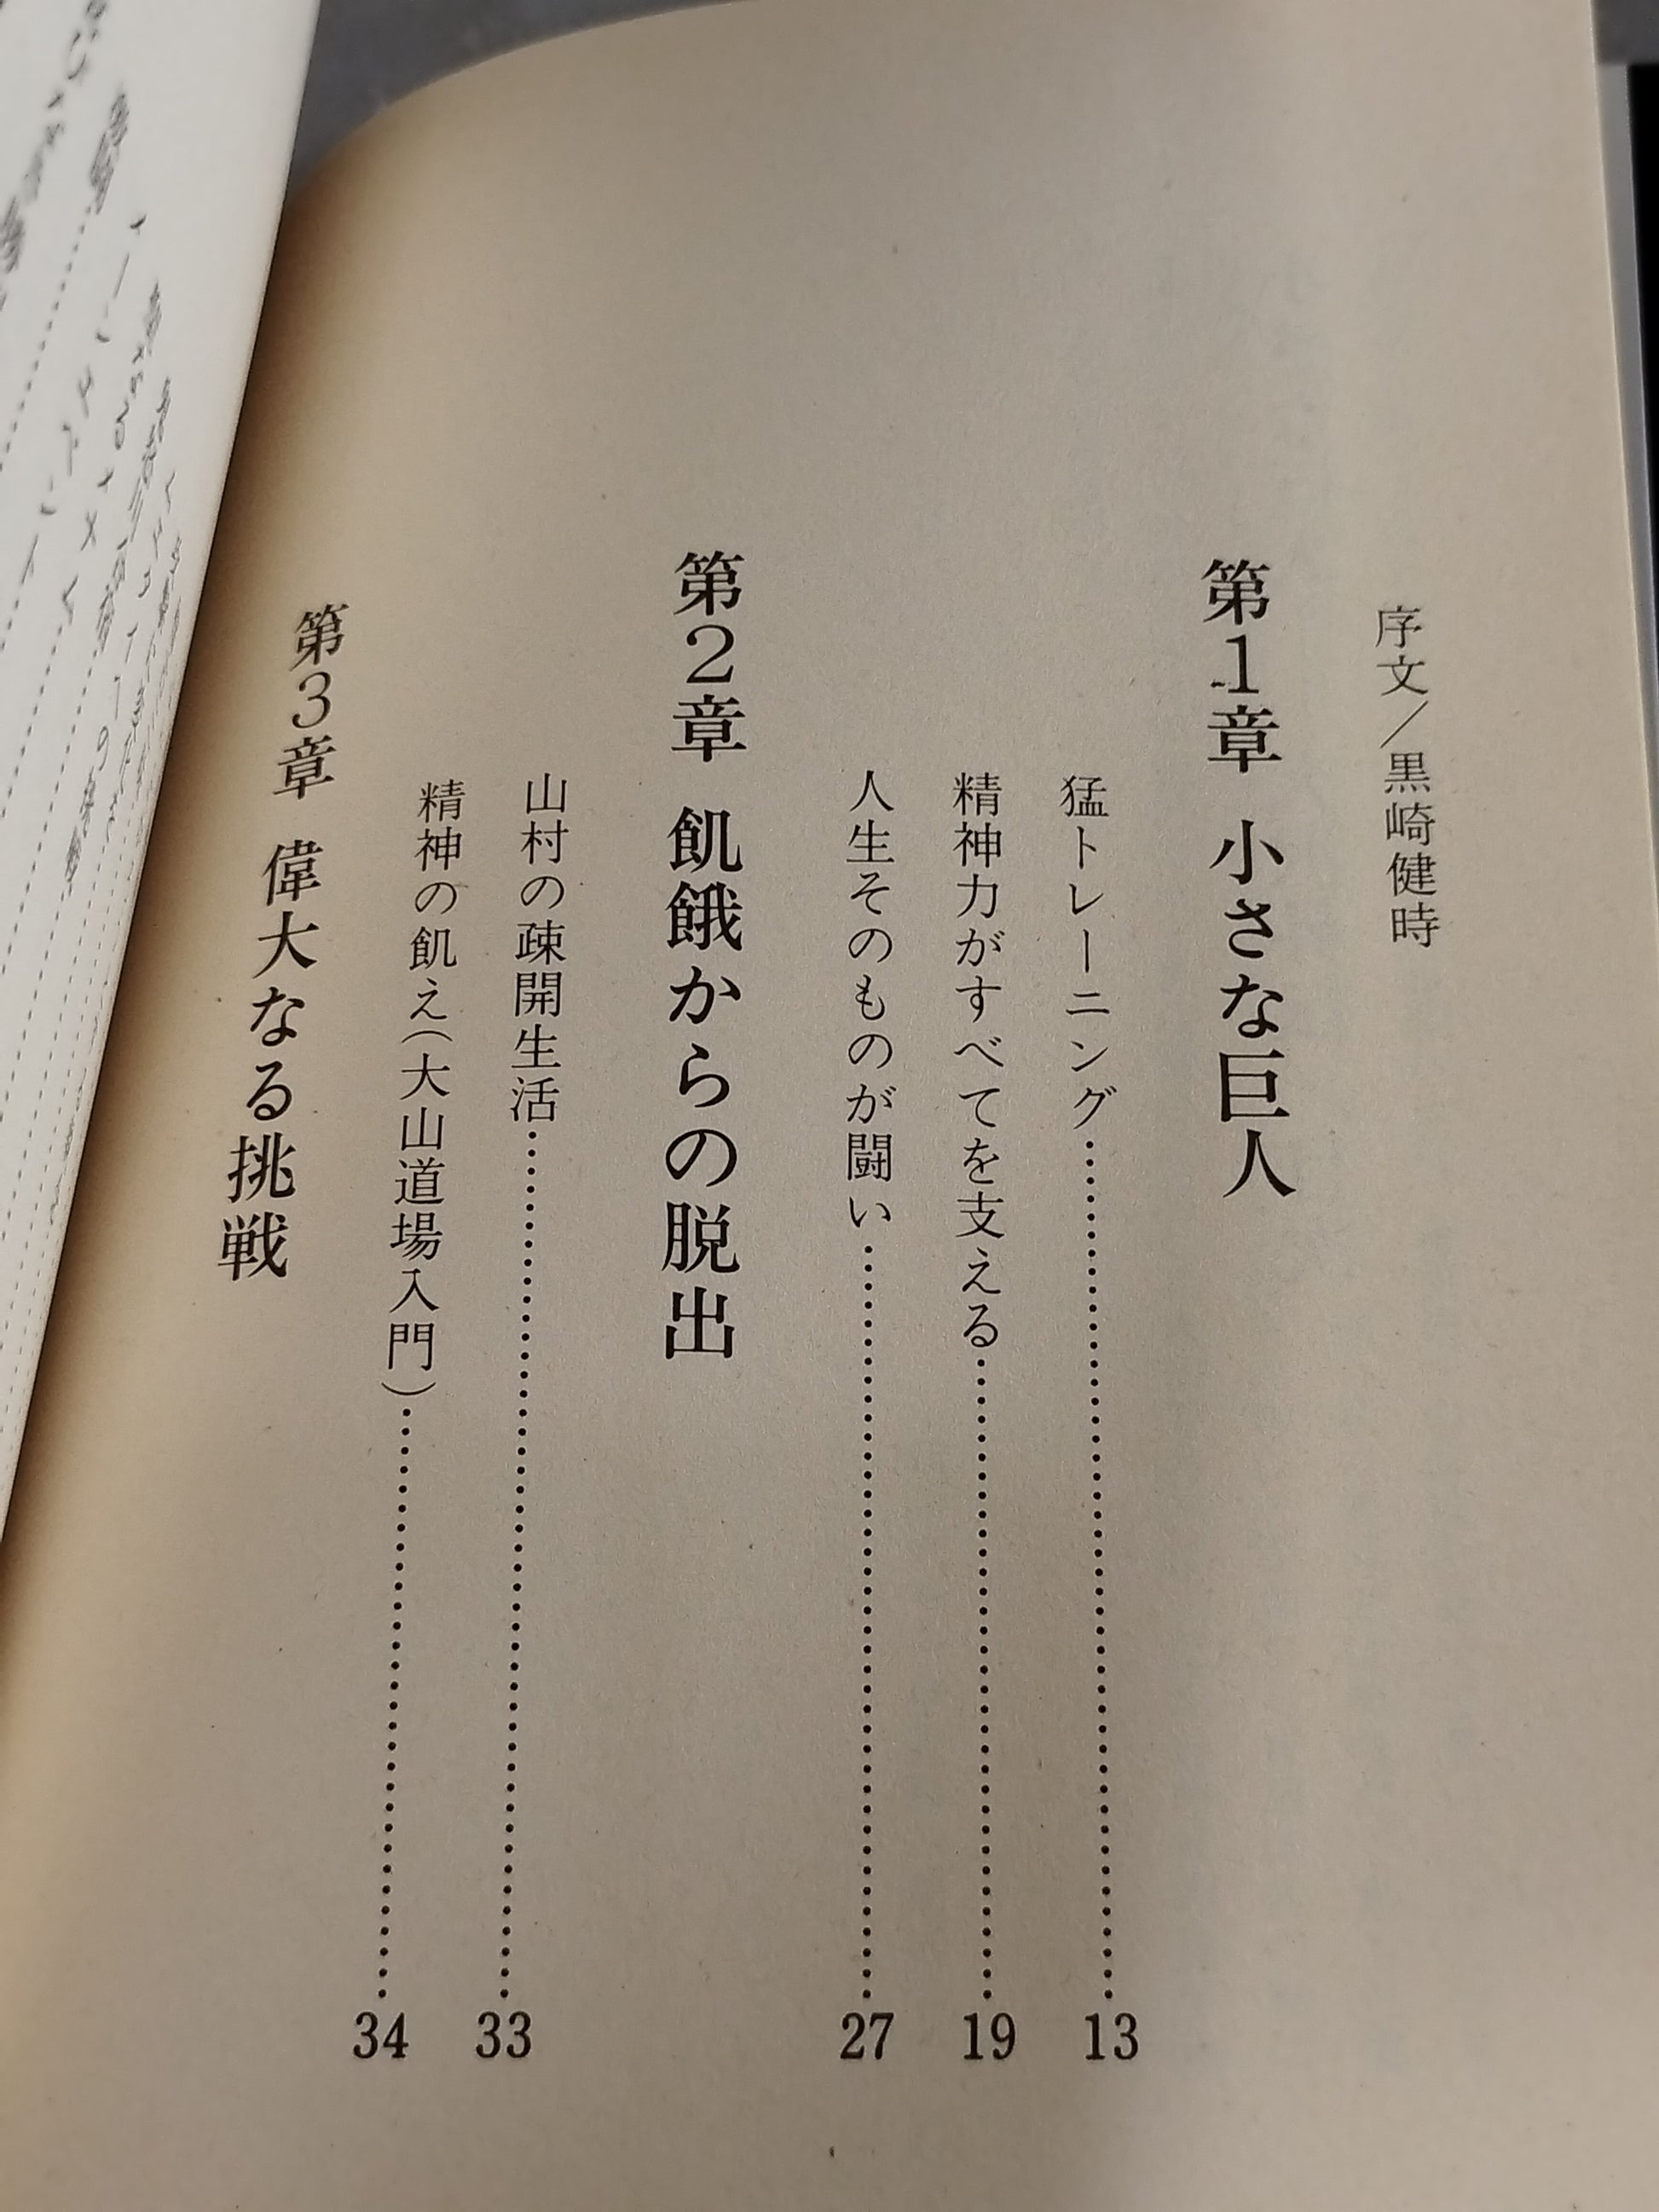 序文／黒崎健時
第1章 小さな巨人
猛トレーニング……………………13
精神力がすべてを支える……………………19
人生そのものが闘い……………………27
第2章 飢餓からの脱出
山村の疎開生活……………………33
精神の飢え（大山道場入門）……………………34
第3章 偉大なる挑戦